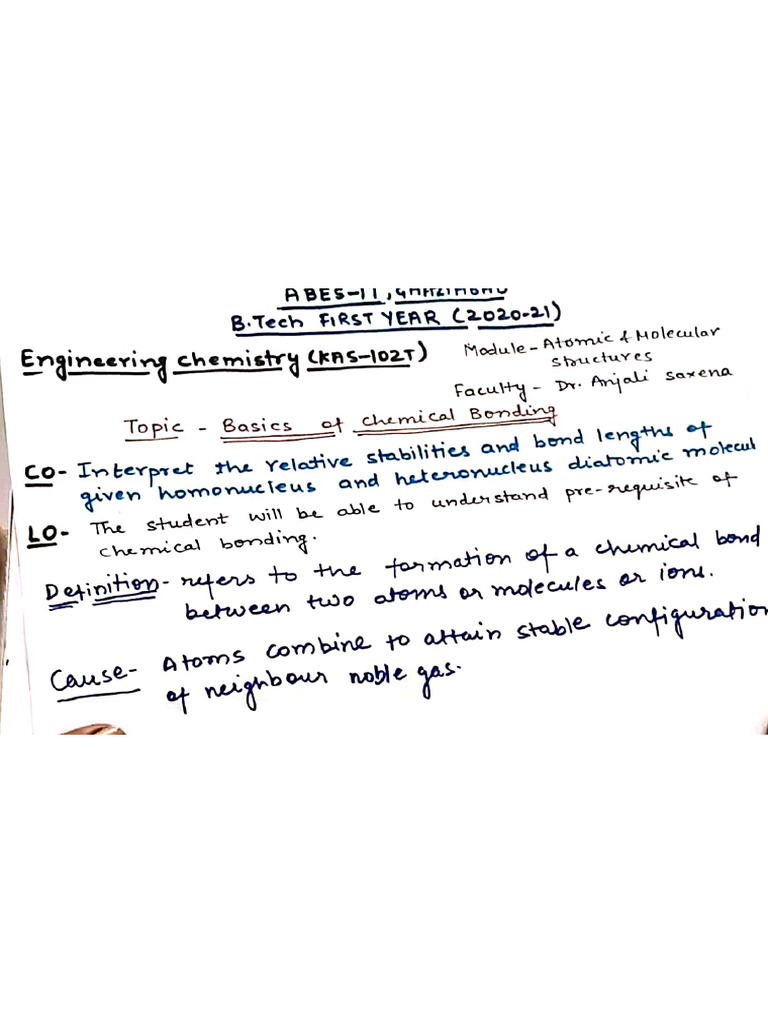 ABES-11,
B.Tech FIRST YEAR (2020-21)
Engineering chemistry (KAS-102T)
Module - Atomic & Molecular
structures
Faculty - Dr. Anjali Saxena
Topic - Basics of Chemical Bonding
CO - Interpret the relative stabilities and bond lengths of
given homonucleus and heteronucleus diatomic molecul
LO - The student will be able to understand pre-requisite of
chemical bonding.
Definition - refers to the formation of a chemical bond
between two atoms or molecules or ions.
Cause - Atoms combine to attain stable configuration
of neighbour noble gas.